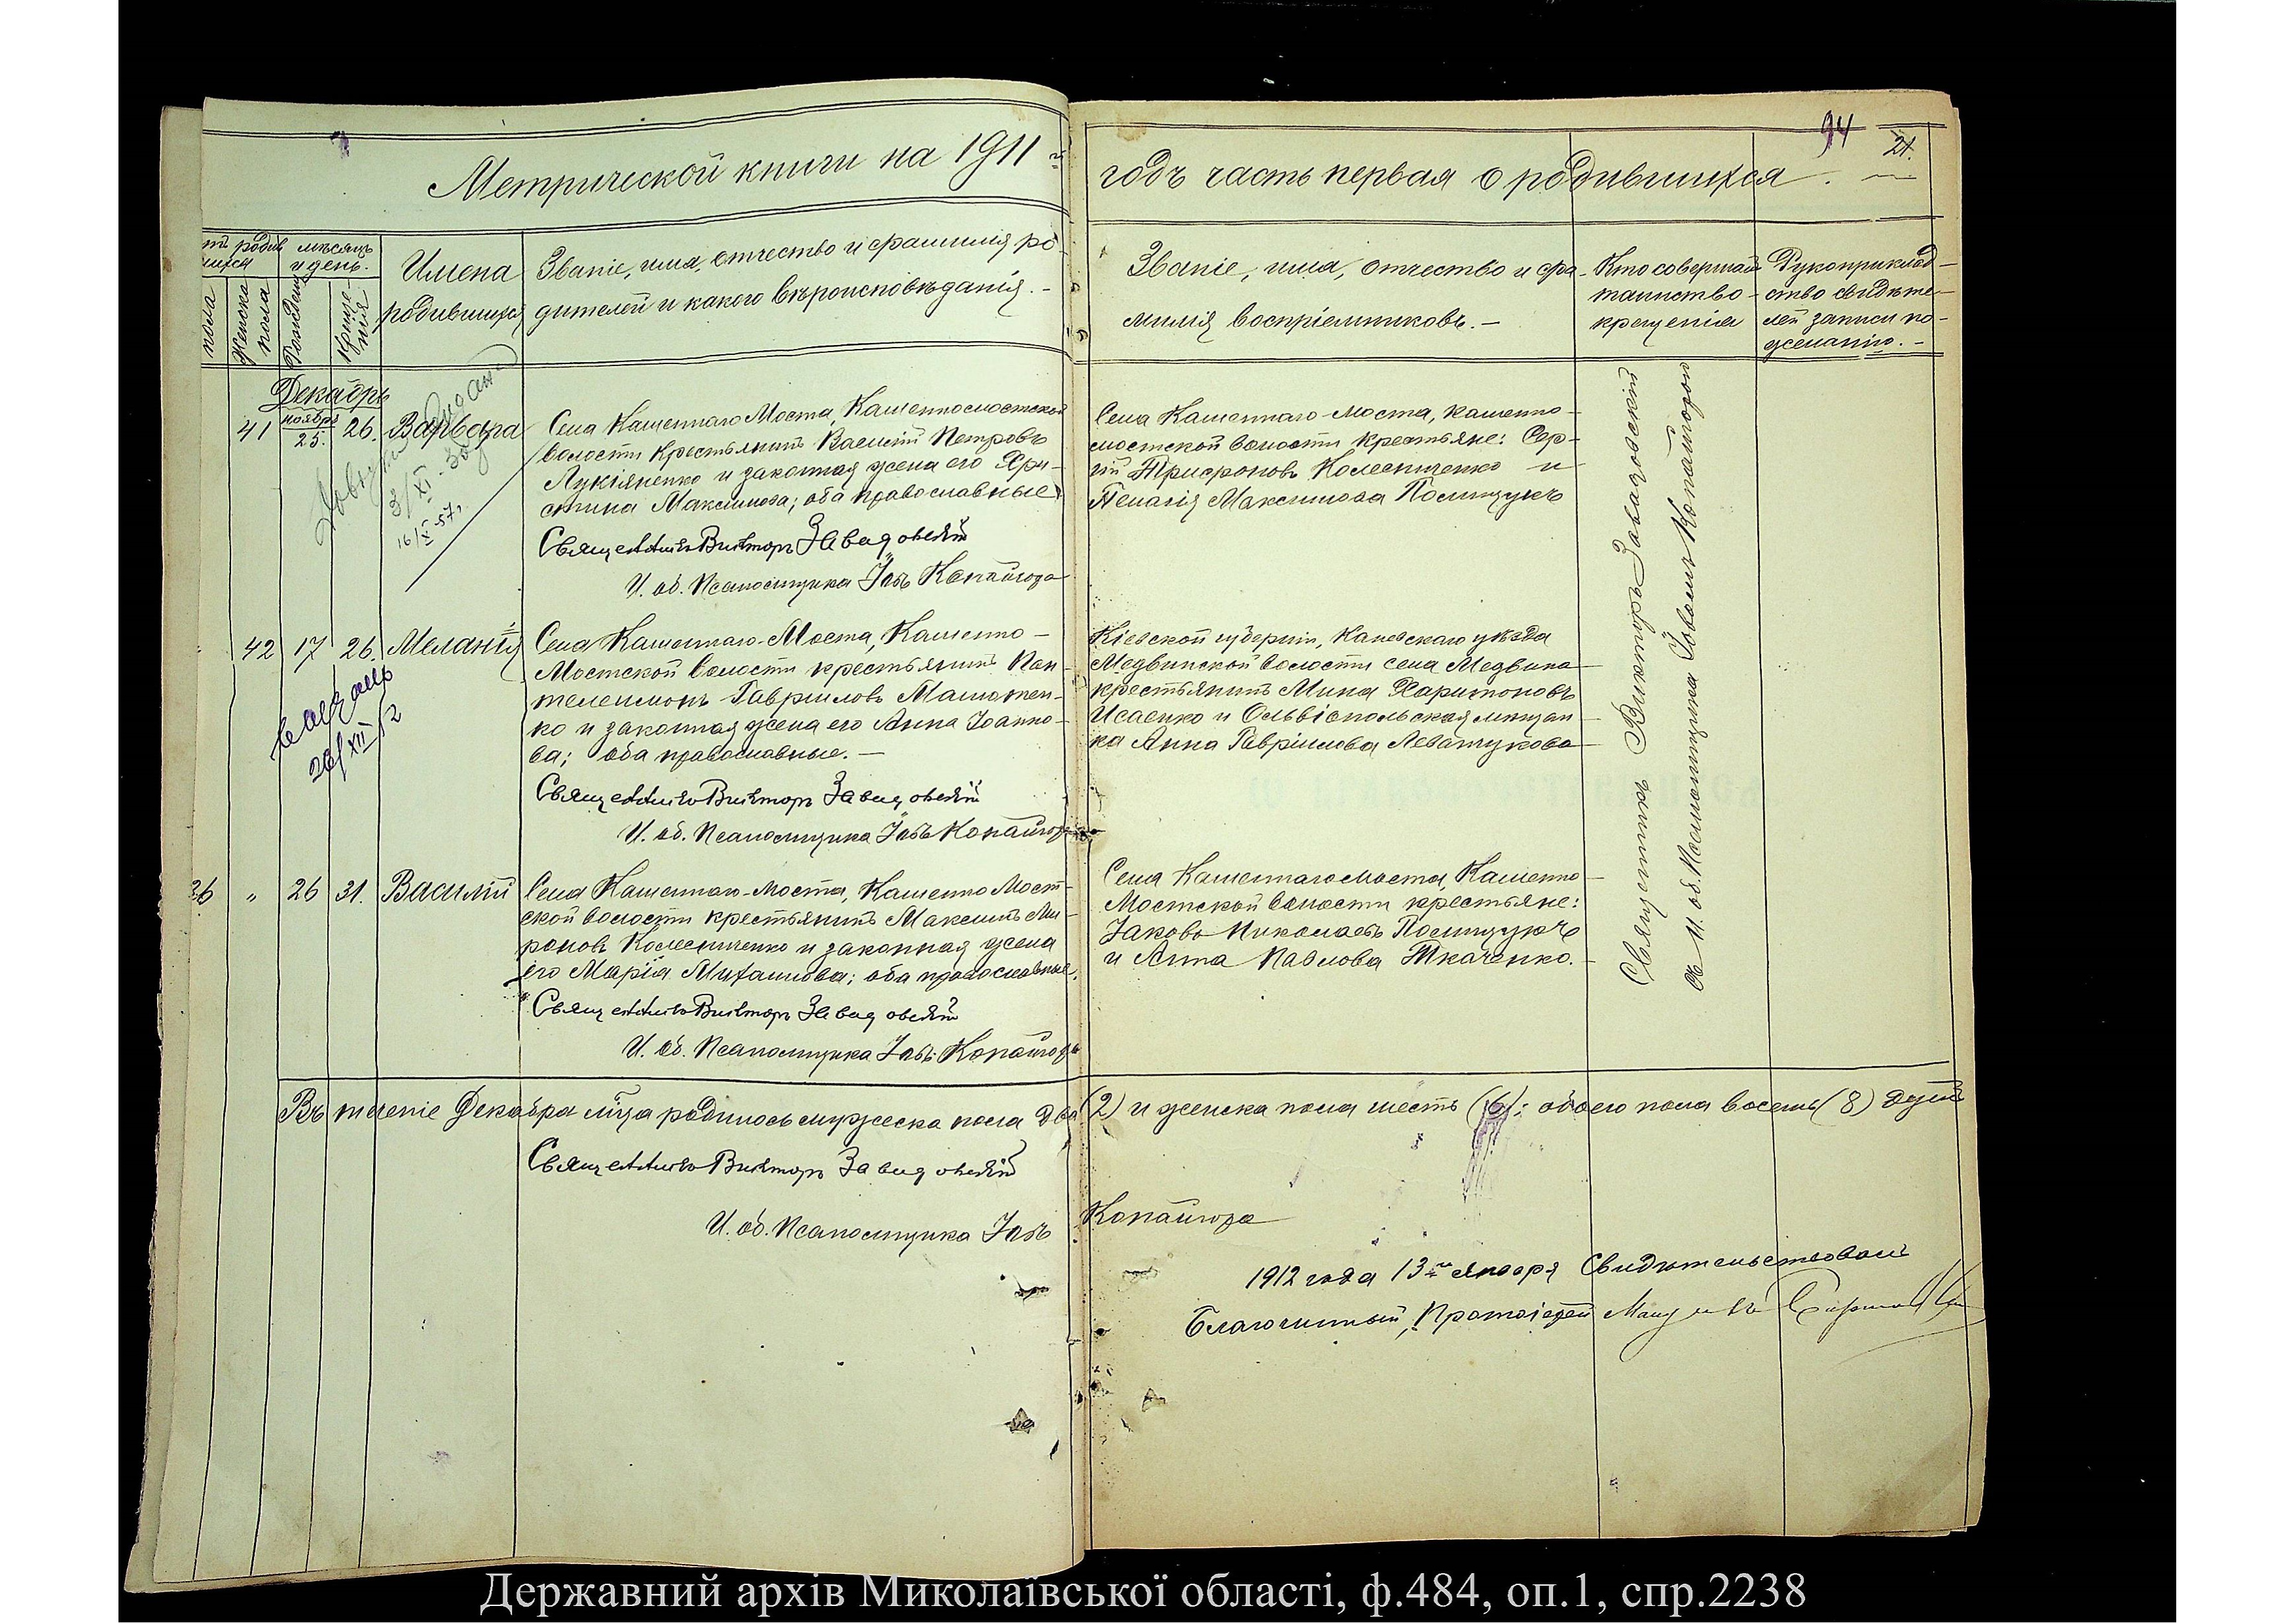 94
21.
Метрической книги на 1911 й
годъ часть первая о родившихся.
мѣсяцъ
и день.
Имена
родившихся
Званіе, имя, отчество и фамилія ро-
дителей и какого вѣроисповѣданія.-
пола
Женска
пола
Рожденія
Креще-
нія
Званіе, имя, отчество и фа-
милія воспріемниковъ.-
Кто совершалъ
таинство
крещенія
Рукоприклад-
ство свидѣте-
лей записи по
желанію.-
Декабрь
41
ноября
25.
26.
Варвара
Села Каменнаго Моста, Каменномостской
волости крестьянинъ Василій Петровъ
Лукіяненко и законная жена его Хри-
стина Максимова; оба православные
Священникъ Викторъ Завадовскій
И. об. Псаломщика Іовъ Копайгода
16/X-57
Села Каменнаго-Моста, Каменно-
мостской волости крестьяне: Сер-
гій Трифоновъ Колесниченко и
Пелагія Максимова Полищукъ
42
17
26.
Меланія
26/XII 52
Села Каменнаго-Моста, Каменно-
Мостской волости крестьянинъ Пан-
телеимонъ Гавриловъ
ко и законная жена его Анна Іоанно-
ва; оба православные.-
Священникъ Викторъ Завадовскій
И. об. Псаломщика Іовъ Копайгода
Кіевской губерніи, Каневскаго уѣзда
Медвинской волости села Медвина
крестьянинъ Мина Харитоновъ
Исаенко и Ольвіопольская мещан-
ка Анна Гавріилова Левандукова
36
"
26
31.
Василій
Села Каменнаго-Моста, Каменно Мост-
ской волости крестьянинъ Максимъ Ми-
роновъ Колесниченко и законная жена
его Марія Михаилова; оба православные.
Священникъ Викторъ Завадовскій
И. об. Псаломщика Іовъ Копайгода
Села Каменнаго Моста, Каменно-
Мостской волости крестьяне:
Іаковъ Николаевъ Полищукъ
и Анна Павлова Ткаченко.
Священникъ Викторъ Завадовскій
съ И. об. Псаломщика Іовомъ Копайгодой
Въ теченіе Декабря мѣсяца родилось мужеска пола два (2) и женска пола шесть (6); обоего пола восемь (8) душъ
Священникъ Викторъ Завадовскій
И. об. Псаломщика Іовъ Копайгода
1912 года 13го Января Свидѣтельствовалъ
Благочинный, Протоіерей
Державний архів Миколаївської області, ф.484, оп.1, спр.2238